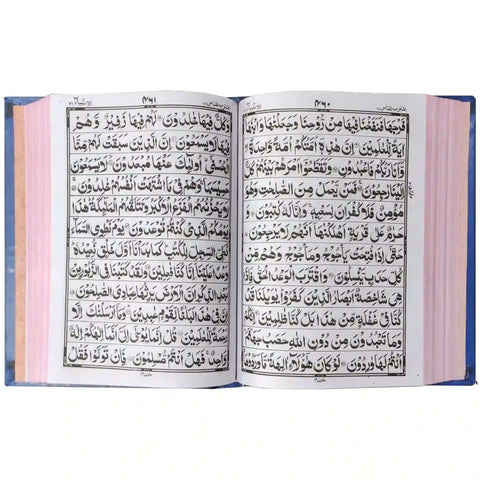 اقترب للناس ١٧ ٤٦٠ الانبيآء ٢١
فَرْجَهَا فَنَفَخْنَا فِيْهَا مِنْ رُّوْحِنَا وَجَعَلْنٰهَا وَابْنَهَاۤ
اٰيَةً لِّلْعٰلَمِيْنَ اِنَّ هٰذِهٖۤ اُمَّتُكُمْ اُمَّةً وَّاحِدَةً
وَّاَنَا رَبُّكُمْ فَاعْبُدُوْنِ وَتَقَطَّعُوْۤا اَمْرَهُمْ بَيْنَهُمْ كُلٌّ
اِلَيْنَا رٰجِعُوْنَ فَمَنْ يَّعْمَلْ مِنَ الصّٰلِحٰتِ وَهُوَ
مُؤْمِنٌ فَلَا كُفْرَانَ لِسَعْيِهٖ وَاِنَّا لَهٗ كٰتِبُوْنَ وَ
حَرٰمٌ عَلٰى قَرْيَةٍ اَهْلَكْنٰهَاۤ اَنَّهُمْ لَا يَرْجِعُوْنَ
حَتّٰىۤ اِذَا فُتِحَتْ يَاْجُوْجُ وَمَاْجُوْجُ وَهُمْ مِّنْ
كُلِّ حَدَبٍ يَّنْسِلُوْنَ وَاقْتَرَبَ الْوَعْدُ الْحَقُّ فَاِذَا
هِيَ شَاخِصَةٌ اَبْصَارُ الَّذِيْنَ كَفَرُوْا يٰوَيْلَنَا قَدْ
كُنَّا فِيْ غَفْلَةٍ مِّنْ هٰذَا بَلْ كُنَّا ظٰلِمِيْنَ اِنَّكُمْ
وَمَا تَعْبُدُوْنَ مِنْ دُوْنِ اللّٰهِ حَصَبُ جَهَنَّمَ
اَنْتُمْ لَهَا وٰرِدُوْنَ لَوْ كَانَ هٰۤؤُلَآءِ اٰلِهَةً مَّا وَرَدُوْهَا
اقترب للناس ١٧ ٤٦١ الانبيآء ٢١
وَكُلٌّ فِيْهَا خٰلِدُوْنَ لَهُمْ فِيْهَا زَفِيْرٌ وَّهُمْ
فِيْهَا لَا يَسْمَعُوْنَ اِنَّ الَّذِيْنَ سَبَقَتْ لَهُمْ مِّنَّا
الْحُسْنٰۤى اُولٰٓئِكَ عَنْهَا مُبْعَدُوْنَ لَا يَسْمَعُوْنَ
حَسِيْسَهَا وَهُمْ فِيْ مَا اشْتَهَتْ اَنْفُسُهُمْ خٰلِدُوْنَ
لَا يَحْزُنُهُمُ الْفَزَعُ الْاَكْبَرُ وَتَتَلَقّٰىهُمُ الْمَلٰٓئِكَةُ
هٰذَا يَوْمُكُمُ الَّذِيْ كُنْتُمْ تُوْعَدُوْنَ يَوْمَ نَطْوِي السَّمَآءَ
كَطَيِّ السِّجِلِّ لِلْكُتُبِ كَمَا بَدَاْنَاۤ اَوَّلَ خَلْقٍ نُّعِيْدُهٗ
وَعْدًا عَلَيْنَا اِنَّا كُنَّا فٰعِلِيْنَ وَلَقَدْ كَتَبْنَا فِي الزَّبُوْرِ مِنْ
بَعْدِ الذِّكْرِ اَنَّ الْاَرْضَ يَرِثُهَا عِبَادِيَ الصّٰلِحُوْنَ
اِنَّ فِيْ هٰذَا لَبَلٰغًا لِّقَوْمٍ عٰبِدِيْنَ وَمَاۤ اَرْسَلْنٰكَ اِلَّا
رَحْمَةً لِّلْعٰلَمِيْنَ قُلْ اِنَّمَا يُوْحٰۤى اِلَيَّ اَنَّمَاۤ اِلٰهُكُمْ اِلٰهٌ
وَّاحِدٌ فَهَلْ اَنْتُمْ مُّسْلِمُوْنَ فَاِنْ تَوَلَّوْا فَقُلْ